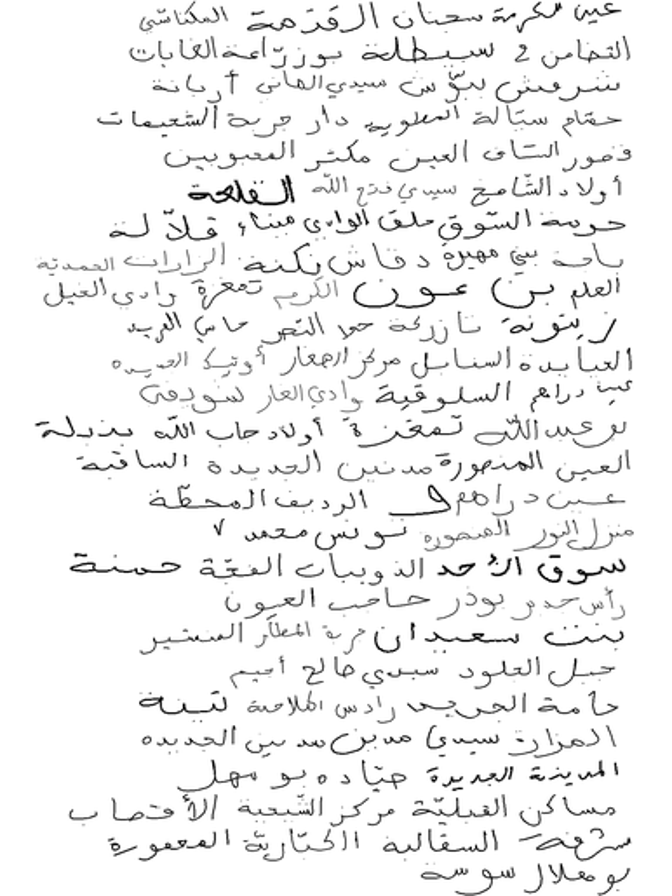 عين الكرمة سمنان الرقدمة المكناسي
التضامن 2 سبيطلة بوزرّاعة الغابات
شرميش ببّوش سيدي الهاني أريانة
حمّام سيّالة المطوية دار جربة الشعيمات
قصور الساف العين مكثر العبوبيين
أولاد الشامخ سيدي فتح الله القلعة
حومة السّوق حلق الوادي ميناء قلاّلة
باجة بني مهيرة دقاش نكنة الزارات الحمدية
العلم بن عون الكريم تمغزة وادي الغيل
زيتونة تازركة حي النصر حاسي الفريد
العبابدة السنابل مركز العقار أوتيك الجديدة
عين دراهم السلوقية وادي الغار
بو عبد الله تمغزة أولاد حاب الله
العين المنصورة مدنين الجديدة الساقية
عين دراهم الرديف المحطّة
منزل النور المنصورة تونس محمد ٧
سوق الأحد الذويبات الفجّة حمنة
رأس جدير بوذر حاجب العيون
بنت سعيدان جربة المطار المنستير
جبل الجلود سيدي صالح أجيم
حامة الجريد رادس الملاحة لبنة
المزارة سيدي مدين مدنين الجديدة
المدينة الجديدة حيّادة بو مهل
مساكن القبليّة مركز الشيحية الأقصاب
شرفة السقالبة الحبّاريّة المعمورة
بومهلال سوسة